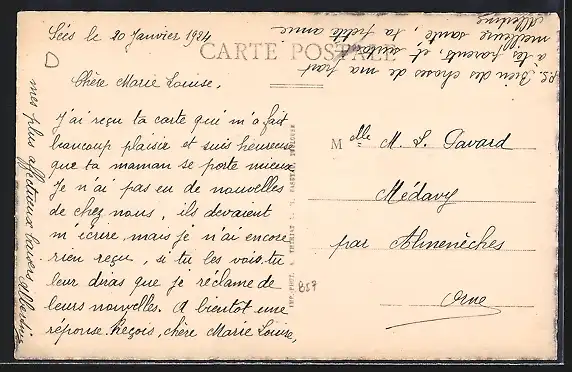 Sées le 20 Janvier 1924
CARTE POSTALE
Chère Marie Louise,
J'ai reçu ta carte qui m'a fait
beaucoup plaisir et suis heureuse
que ta maman se porte mieux.
Je n'ai pas eu de nouvelles
de chez nous, ils devaient
m'écrire, mais je n'ai encore
rien reçu, si tu les vois, tu
leur diras que je réclame de
leurs nouvelles. A bientôt une
réponse. Reçois, chère Marie Louise,
mes plus affectueux baisers
P.S. Bien des choses de ma part
à tes parents, et
meilleure santé, ta petite amie
Albertine
Melle M. L. Pavard
Médavy
par Almenêches
Orne
857